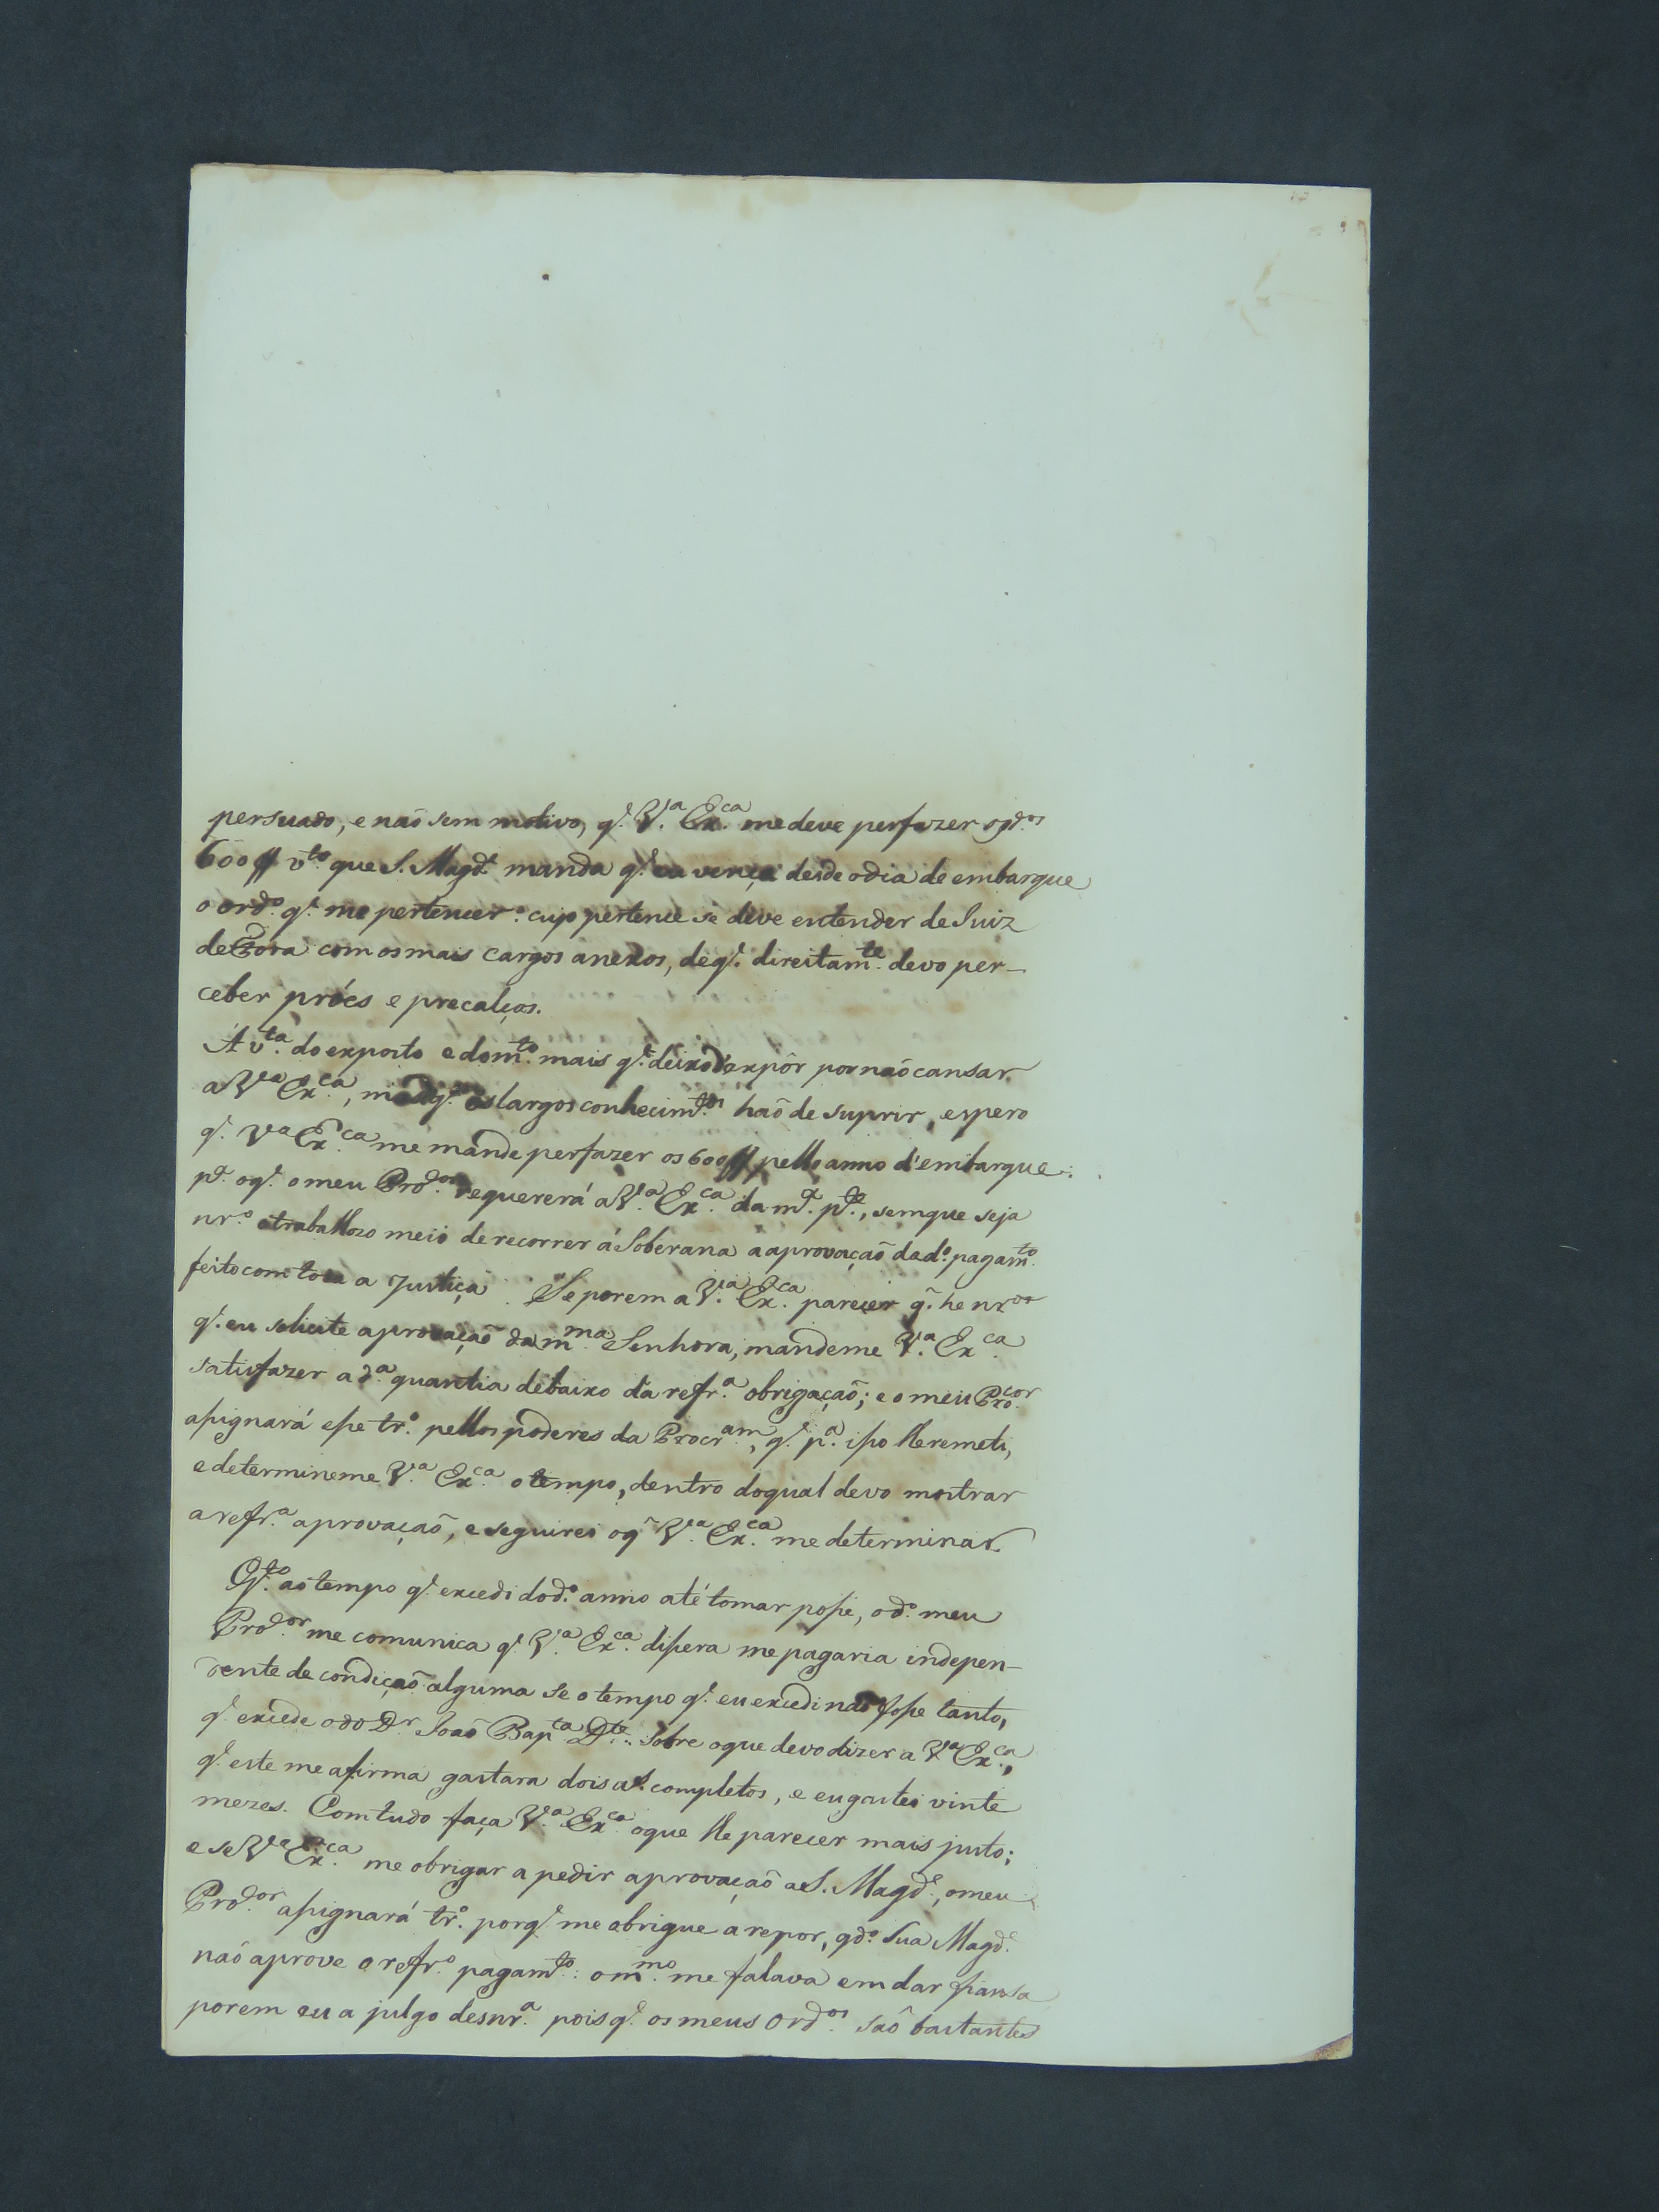 persuado, e naõ sem motivo, q.ᵉ V.ª Ex.ᶜᵃ me deve perfazer os d.ᵒˢ
600$ v.ᵗᵒ que S. Magd.ᵉ manda q.ᵉ eu vença desde o dia de embarque
o ord.º q.ᵉ me pertencer: cujo pertence se deve entender de Juiz
de Fora com os mais cargos anexos, de q.ᵉ direitam.ᵗᵉ devo per-
ceber próes e precalços.
Á v.ᵗᵃ do exposto e do m.ᵗᵒ mais q.ᵉ deixo d'expôr por naõ cansar
a V.ª Ex.ᶜᵃ, largos conhecim.ᵗᵒˢ haõ de suprir, espero
q.ᵉ V.ª Ex.ᶜᵃ me mande perfazer os 600$ pello anno d'embarque:
p.ª o q.ᵉ o meu Prod.ᵒʳ requererá a V.ª Ex.ᶜᵃ da m.ª p.ᵗᵉ, sem que seja
nr.º o traballozo meio de recorrer á Soberana a aprovaçaõ do d.º pagam.ᵗᵒ
feito com toda a Justiça. Se porem a V.ª Ex.ᶜᵃ parecer q̃ he nr.º
q.ᵉ eu solicite aprovaçaõ da m.ᵐᵃ Senhora, mandeme V.ª Ex.ᶜᵃ
satisfazer a d.ª quantia debaixo da refr.ª obrigaçaõ; e o meu Pro.ᶜᵒʳ
assignará esse tr.º pellos poderes da Procr.ᵃᵐ, q.ᵉ p.ª isso lle remeti,
e determineme V.ª Ex.ᶜᵃ o tempo, dentro do qual devo mostrar
a refr.ª aprovaçaõ, e seguirei o q̃ V.ª Ex.ᶜᵃ me determinar.
Q.ᵗᵒ ao tempo q.ᵉ excedi do d.º anno até tomar posse, o d.º meu
Prod.ᵒʳ me comunica q.ᵉ V.ª Ex.ᶜᵃ dissera me pagaria indepen-
dente de condiçaõ alguma se o tempo q.ᵉ eu excedi naõ fosse tanto,
q.ᵉ excede o do D.ʳ Joaõ Bap.ᵗᵃ D.ᵗᵉ: sobre o que devo dizer a V.ª Ex.ᶜᵃ,
q.ᵉ este me afirma gastara dois a.ˢ completos, e eu gastei vinte
mezes. Comtudo faça V.ª Ex.ᶜᵃ o que lle parecer mais justo;
e se V.ª Ex.ᶜᵃ me obrigar a pedir aprovaçaõ a S. Magd.ᵉ, o meu
Prod.ᵒʳ assignará tr.º por q.ᵉ me obrigue a repor, qd.º Sua Magd.ᵉ
naõ aprove o refr.º pagam.ᵗᵒ: o m.ᵐᵒ me falava em dar fiansa
porem eu a julgo desnr.ª pois q.ᵉ os meus Ord.ᵒˢ saõ bastantes